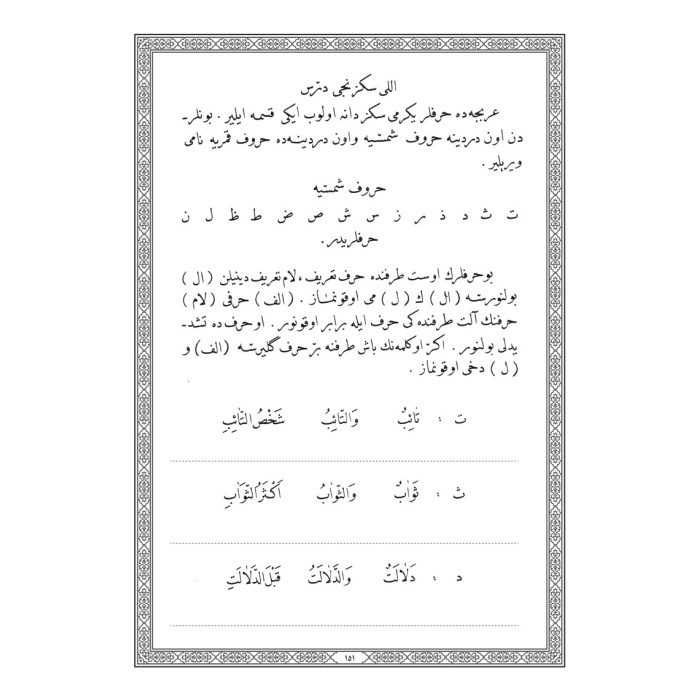 اللى سكزنجى درس
عربجه‌ده حرفلر يكرمى سكز دانه اولوب ايكى قسمه ايلير . بونلر-
دن اون دردينه حروف شمسيه واون دردينه‌ده حروف قمريه نامى
ويريلير .
حروف شمسيه
ت ث د ذ ر ز س ش ص ض ط ظ ل ن
حرفلريدر .
بوحرفلرك اوست طرفنده حرف تعريف ، لام تعريف دينيلن ( ال )
بولنورسه ( ال ) ك ( ل ) مى اوقونماز . ( الف ) حرفى ( لام )
حرفنك آلت طرفنده‌كى حرف ايله برابر اوقونور . اوحرف ده تشد-
يدلى بولنور . اكر اوكلمه‌نك باش طرفنه بر حرف گليرسه ( الف ) و
( ل ) دخى اوقونماز .
ت : تَائِبٌ وَالتَّائِبُ شَخْصُ التَّائِبِ
ث : ثَوَابٌ وَالثَّوَابُ اَكْثَرُ الثَّوَابِ
د : دَلَالَتٌ وَالدَّلَالَتُ قَبْلَ الدَّلَالَتِ
١٥١